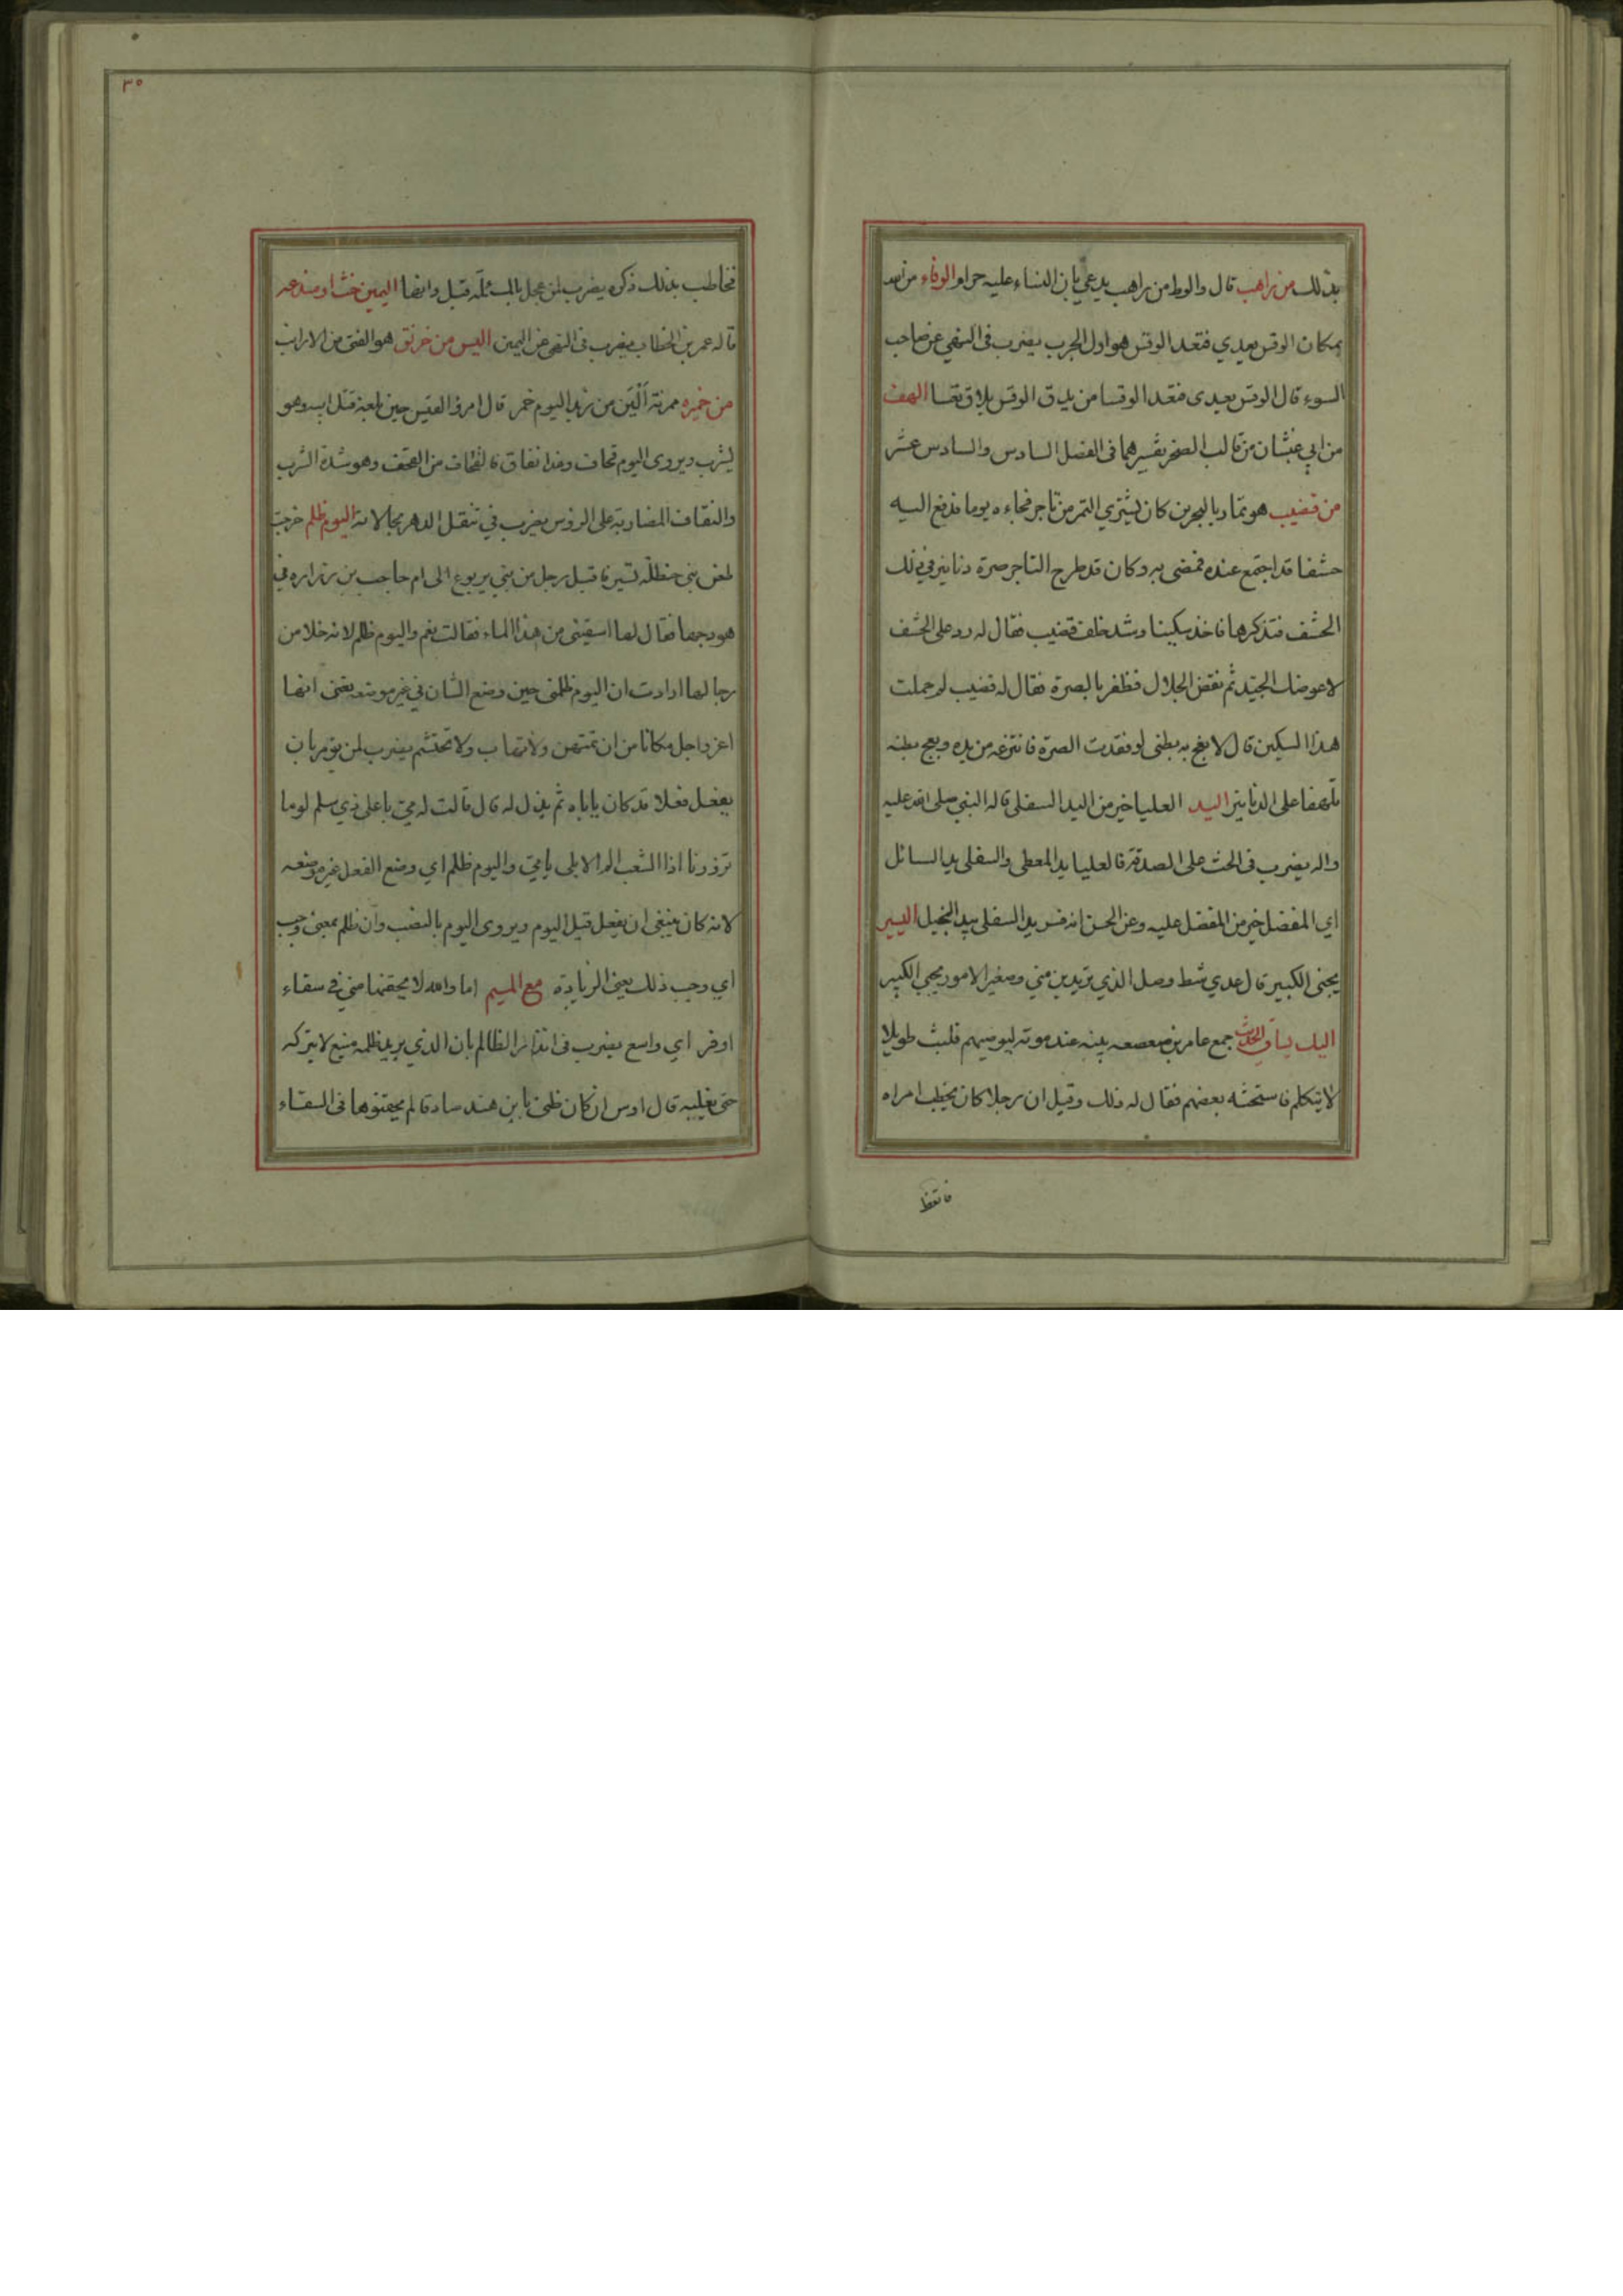 بذلك من راهب قال والوط من راهب يدعي بان النساء عليه حرام الوفاء من الله
بمكان الوقس يعدي فتعد الوقس هو اول الجرب يضرب في النهي عن صاحب
السوء قال الوقس يعدى فتعد الوقسا من يدق الوقس يلاق تعسا الهف
من ابي غبشان من قالب الصخر تفسيرهما فى الفصل السادس والسادس عشر
من قضيب هو تمار بالبحرين كان يشتري التمر من تاجر فجاءه يوما فدفع اليه
حشفا قد اجتمع عنده فمضى به وكان قد طرح التاجر صرة دنانير في ذلك
الحشف فتذكرها فاخذ سكينا وشد خلف قضيب فقال له رد على الحشف
لاعوضك الجيد ثم نفض الجلال فظفر بالصرة فقال له قضيب لم حملت
هذا السكين قال لابعج به بطنى لو فقدت الصرة فانتزعه من يده وبعج بطنه
تلهفا على الدنانير اليد العليا خير من اليد السفلى قاله النبي صلى الله عليه
واله يضرب فى الحث على الصدقة فالعليا يد المعطى والسفلى يد السائل
اي المفضل خير من المفضل عليه وعن الحسن انه فسر يد السفلى بيد البخيل اليسير
يجنى الكبير قال عدي شط وصل الذي تريدين مني وصغير الامور يجني الكبير
اليك يساق الحديث جمع عامر بن صعصعه بنيه عند موته ليوصيهم فلبث طويلا
لا يتكلم فاستحثه بعضهم فقال له ذلك وقيل ان رجلا كان يخطب امراه
فاتعظ
٣٥
فخاطب بذلك ذكره يضرب لمن عجل بالمسئلة قبل وانها اليمين حنث او مندمه
قاله عمر بن الخطاب يضرب فى النهي عن اليمين اليس من خرنق هو الفتى من الارانب
من خميره ممرنة الين من زبد اليوم خمر قال امرؤ القيس حين بلغه قتل ابيه وهو
يشرب ويروى اليوم قحاف وغدا نقاف فالقحاف من القحف وهو شدة الشرب
والنقاف المضاربة على الرؤس يضرب في تنقل الدهر بحالاته اليوم ظلم خرجت
ظعن بني حنظلة تسير فاقبل رجل من بني يربوع الى ام حاجب بن زراره في
هودجها فقال لها اسقيني من هذا الماء فقالت نعم واليوم ظلم لانه خلا من
رجالها ارادت ان اليوم ظلمنى حين وضع الشان في غير موضعه يعنى انها
اعز واجل مكانا من ان تمتهن ولا تهاب ولا تحتشم يضرب لمن يؤمر بان
يفعل فعلا قد كان ياباه ثم يذل له قال قالت له مي باعلى ذي سلم لوما
تزورنا اذا الشعب الم الا بلى يا مي واليوم ظلم اي وضع الفعل غير موضعه
لانه كان ينبغي ان يفعل قبل اليوم ويروى اليوم بالنصب وان ظلم بمعنى وجب
اي وجب ذلك يعني الزيادة مع الميم اما والله لا يحقنها مني في سقاء
اوفر اي واسع يضرب فى انذار الظالم بان الذي يريد ظلمه منيع لا يتركه
حتى يغلبه قال اوس ان كان ظني يا بن هند صادقا لم يحقنوها فى السقاء